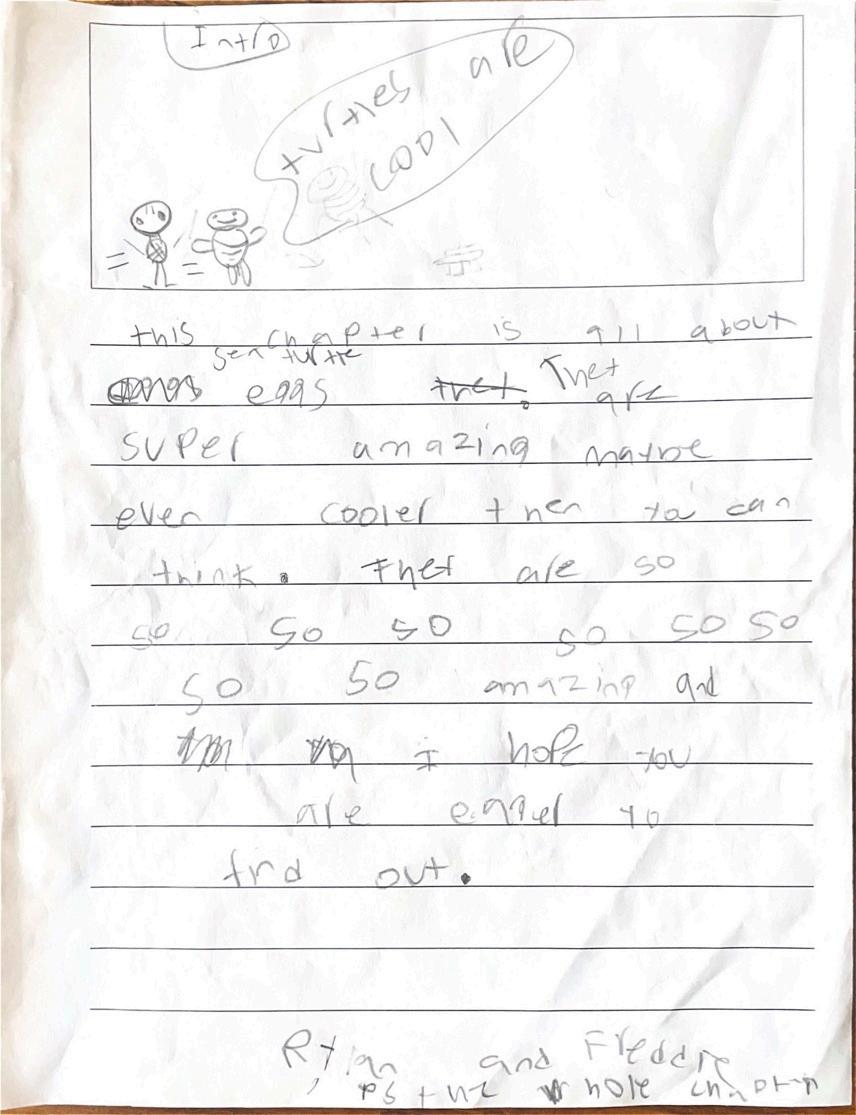 Intro
turtles are
cool
this chapter is all about
sea turtle
eggs thet. They are
super amazing maybe
even cooler then you can
think. They are so
so so so so so so
so so amazing and
I hope you
are eager to
find out.
Rylan and Freddie
PS the whole chapter